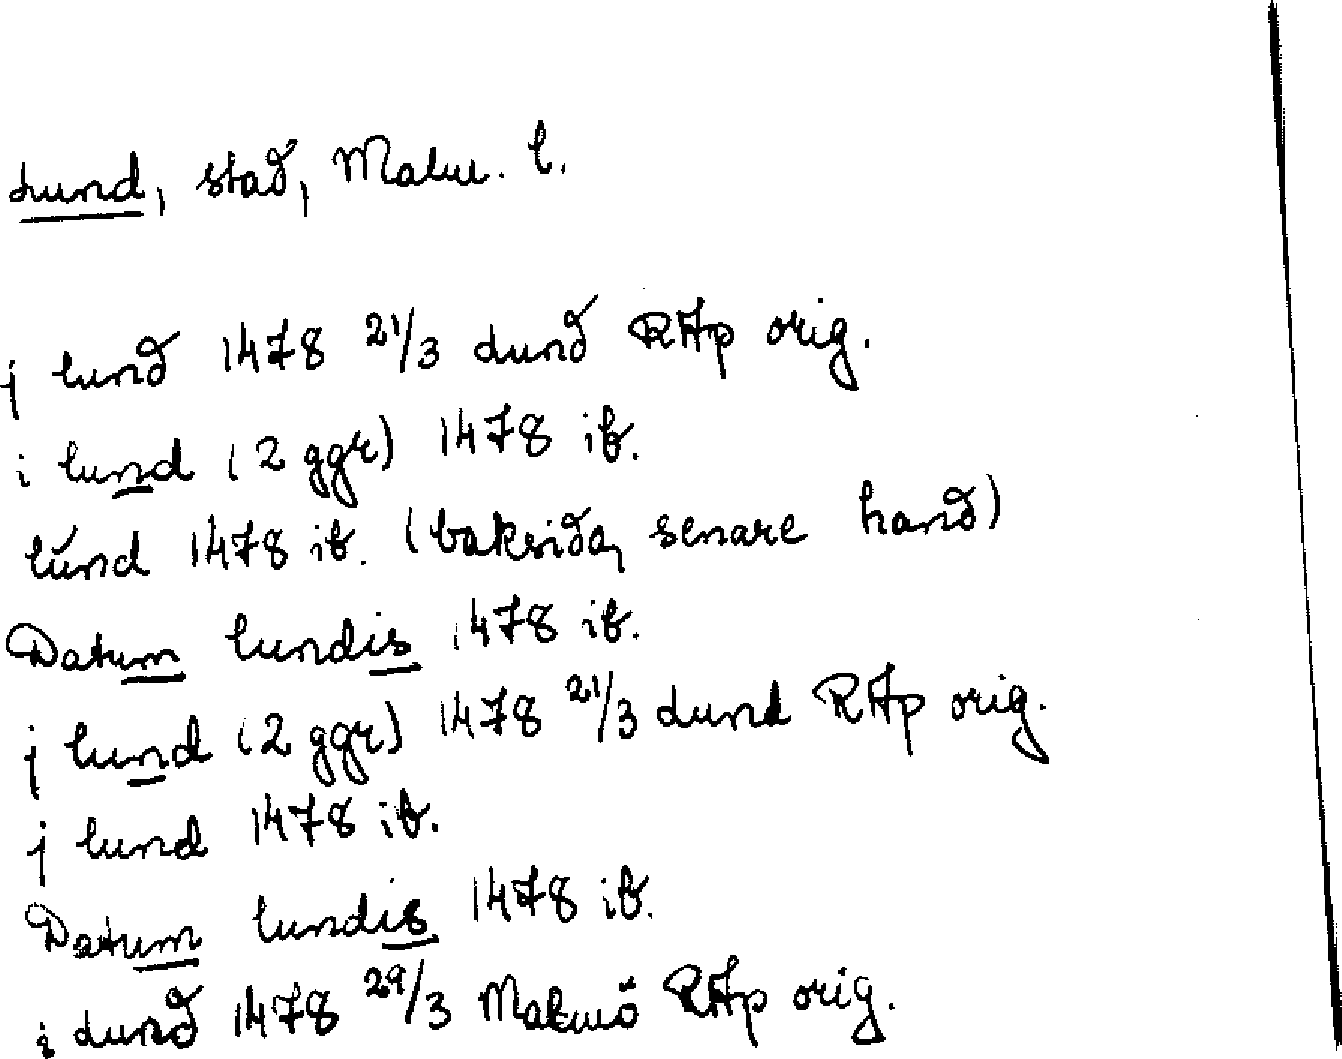 Lund, stad, Malm. l.
j lund 1478 21/3 Lund RAp orig.
i lund (2 ggr) 1478 ib.
lúnd 1478 ib. (baksida, senare hand)
Datum lundis 1478 ib.
j lund (2 ggr) 1478 21/3 Lund RAp orig.
j lund 1478 ib.
Datum lundis 1478 ib.
i Lund 1478 29/3 Malmö RAp orig.